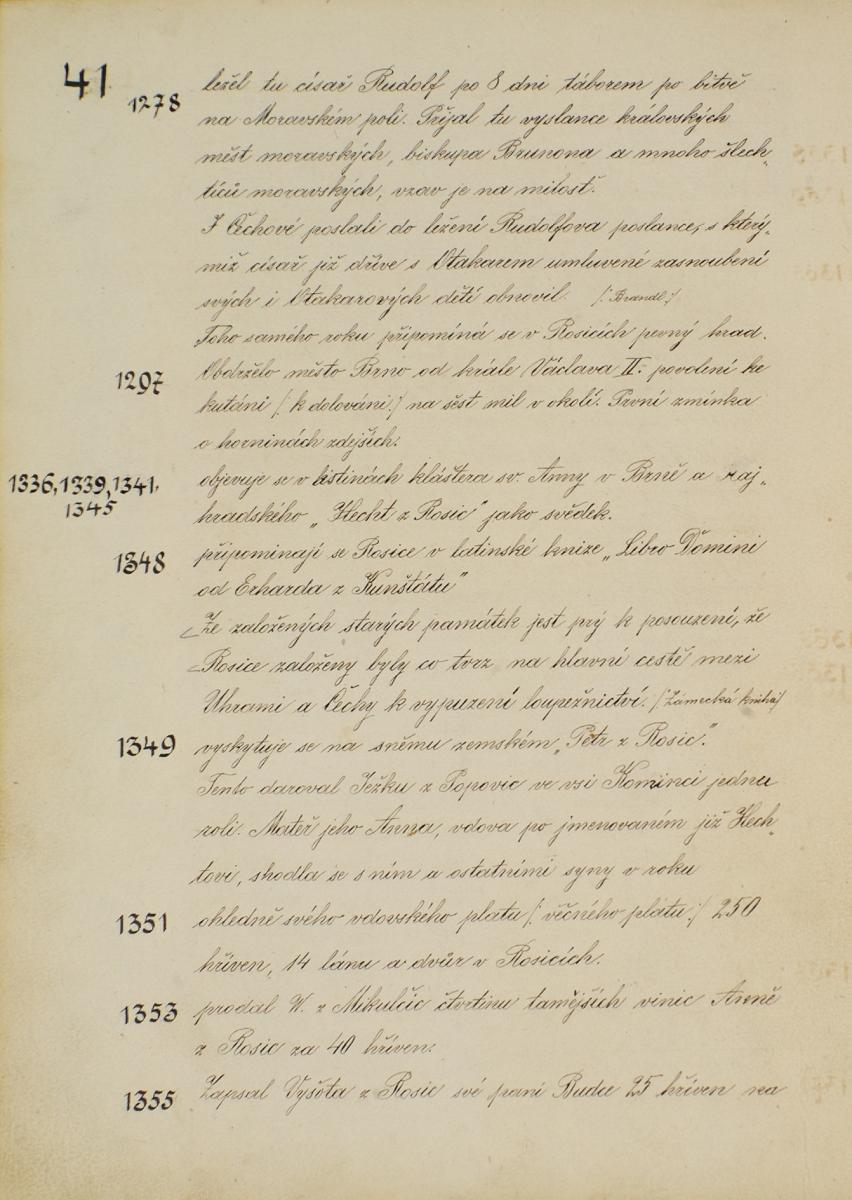 41
1278 ležel tu císař Rudolf po 8 dni táborem po bitvě
na Moravském poli. Přijal tu vyslance královských
měst moravských, biskupa Brunona a mnoho šlech-
ticů moravských, vzav je na milosť.
I Čechové poslali do ležení Rudolfova poslance, s který-
miž císař již dříve s Otakarem umluvené zasnoubení
svých i Otakarových dětí obnovil. /: Brandl :/
Toho samého roku připomíná se v Rosicích pevný hrad.
1297 Obdrželo město Brno od krále Václava II. povolení ke
kutání /: k dolování :/ na šest mil v okolí. První zmínka
o horninách zdejších.
1336, 1339, 1341, objevuje se v listinách kláštera sv. Anny v Brně a raj-
1345 hradského „Hecht z Rosic" jako svědek.
1348 připomínají se Rosice v latinské knize „Libro Domini
od Erharda z Kunštátu"
Ze založených starých památek jest prý k posouzení, že
Rosice založeny byly co tvrz na hlavní cestě mezi
Uhrami a Čechy k vypuzení loupežnictví. /: Zámecká kniha :/
1349 vyskytuje se na sněmu zemském „Petr z Rosic."
Tento daroval Ježku z Popovic ve vsi Kominci jednu
roli. Mateř jeho Anna, vdova po jmenovaném již Hech-
tovi, shodla se s ním a ostatními syny v roku
1351 ohledně svého vdovského platu /: věčného platu :/ 250
hřiven, 14 lánu a dvůr v Rosicích.
1353 prodal W. z Mikulčic čtvrtinu tamějších vinic Anně
z Rosic za 40 hřiven.
1355 Zapsal Vyšota z Rosic své paní Budce 25 hřiven na